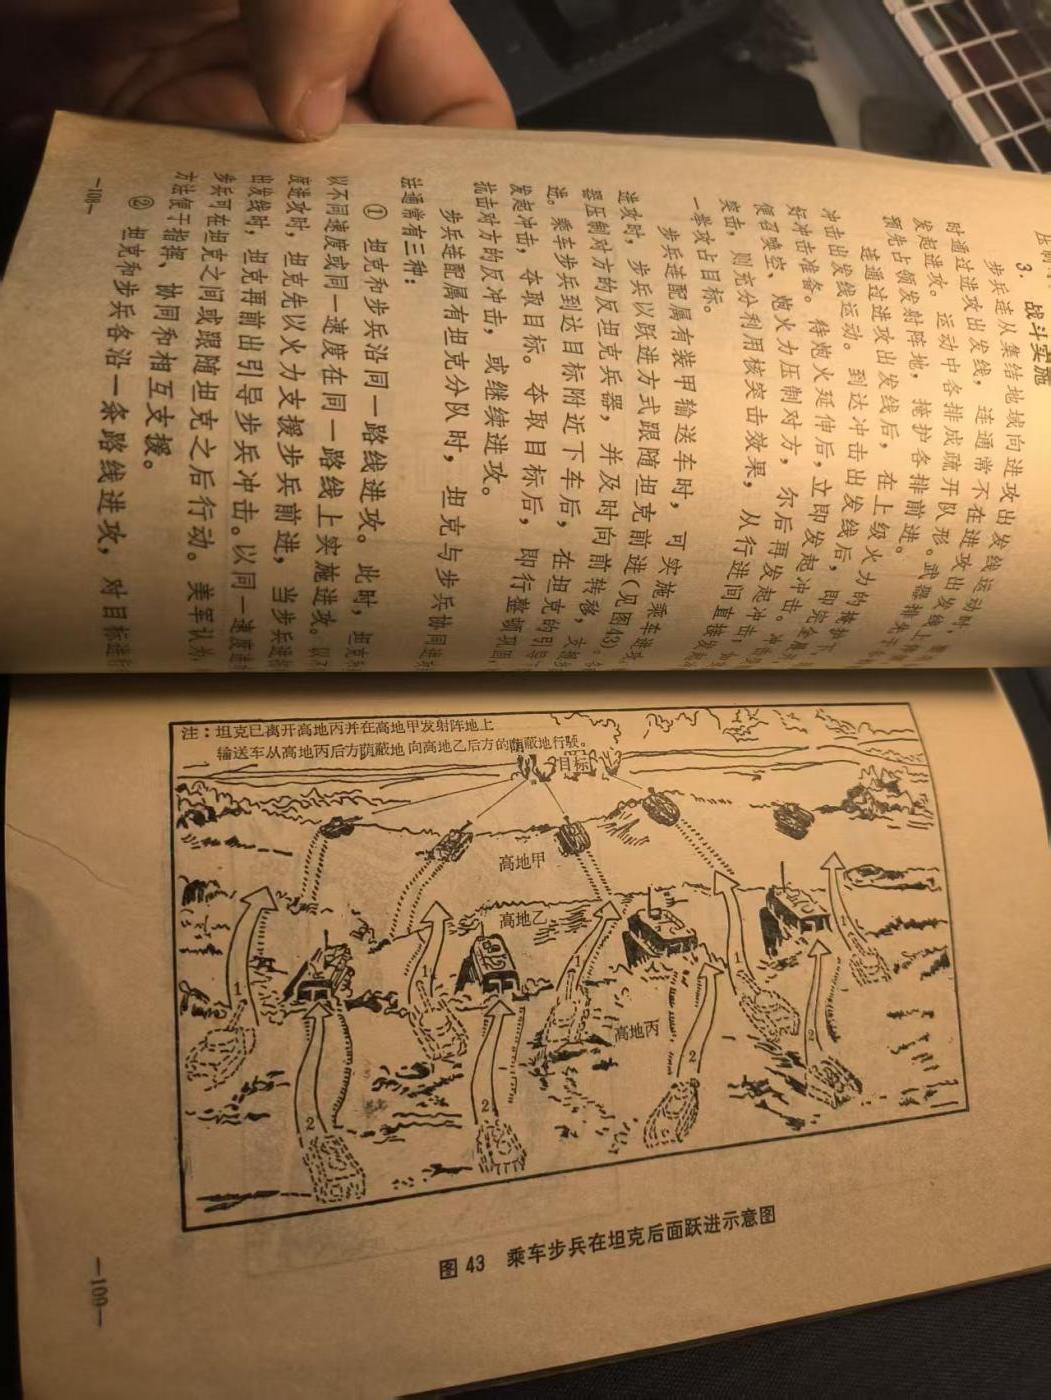 3. 战斗实施
步兵连从集结地域向进攻出发线运动时，
时通过进攻出发线，连通常不在进攻出发线上
发起进攻。运动中各排成疏开队形。武器排
预先占领发射阵地，掩护各排前进。
连通过进攻出发线后，在上级火力的掩护下
冲击出发线运动。到达冲击出发线后，即完
好冲击准备。待炮火延伸后，立即发起冲击。冲
便召唤空、炮火力压制对方，尔后再发起冲击
突击，则充分利用核突击效果，从行进间直接发
一举攻占目标。
步兵连配属有装甲输送车时，可实施乘车进攻。
进攻时，步兵以跃进方式跟随坦克前进(见图43)。
器压制对方的反坦克兵器，并及时向前转移，交替
进。乘车步兵到达目标附近下车后，在坦克的引导
发起冲击，夺取目标。夺取目标后，即行整顿巩固，
抗击对方的反冲击，或继续进攻。
步兵连配属有坦克分队时，坦克与步兵协同进
法通常有三种：
① 坦克和步兵沿同一路线进攻。此时，坦克
以不同速度或同一速度在同一路线上实施进攻。以
度进攻时，坦克先以火力支援步兵前进，当步兵进
出发线时，坦克再前出引导步兵冲击。以同一速度进
步兵可在坦克之间或跟随坦克之后行动。美军认为，
方法便于指挥、协同和相互支援。
② 坦克和步兵各沿一条路线进攻，对目标进行
—108—
注：坦克已离开高地丙并在高地甲发射阵地上
输送车从高地丙后方荫蔽地向高地乙后方的荫蔽地行驶。
目标
高地甲
高地乙
高地丙
1
1
1
1
1
2
2
2
2
图 43 乘车步兵在坦克后面跃进示意图
—109—